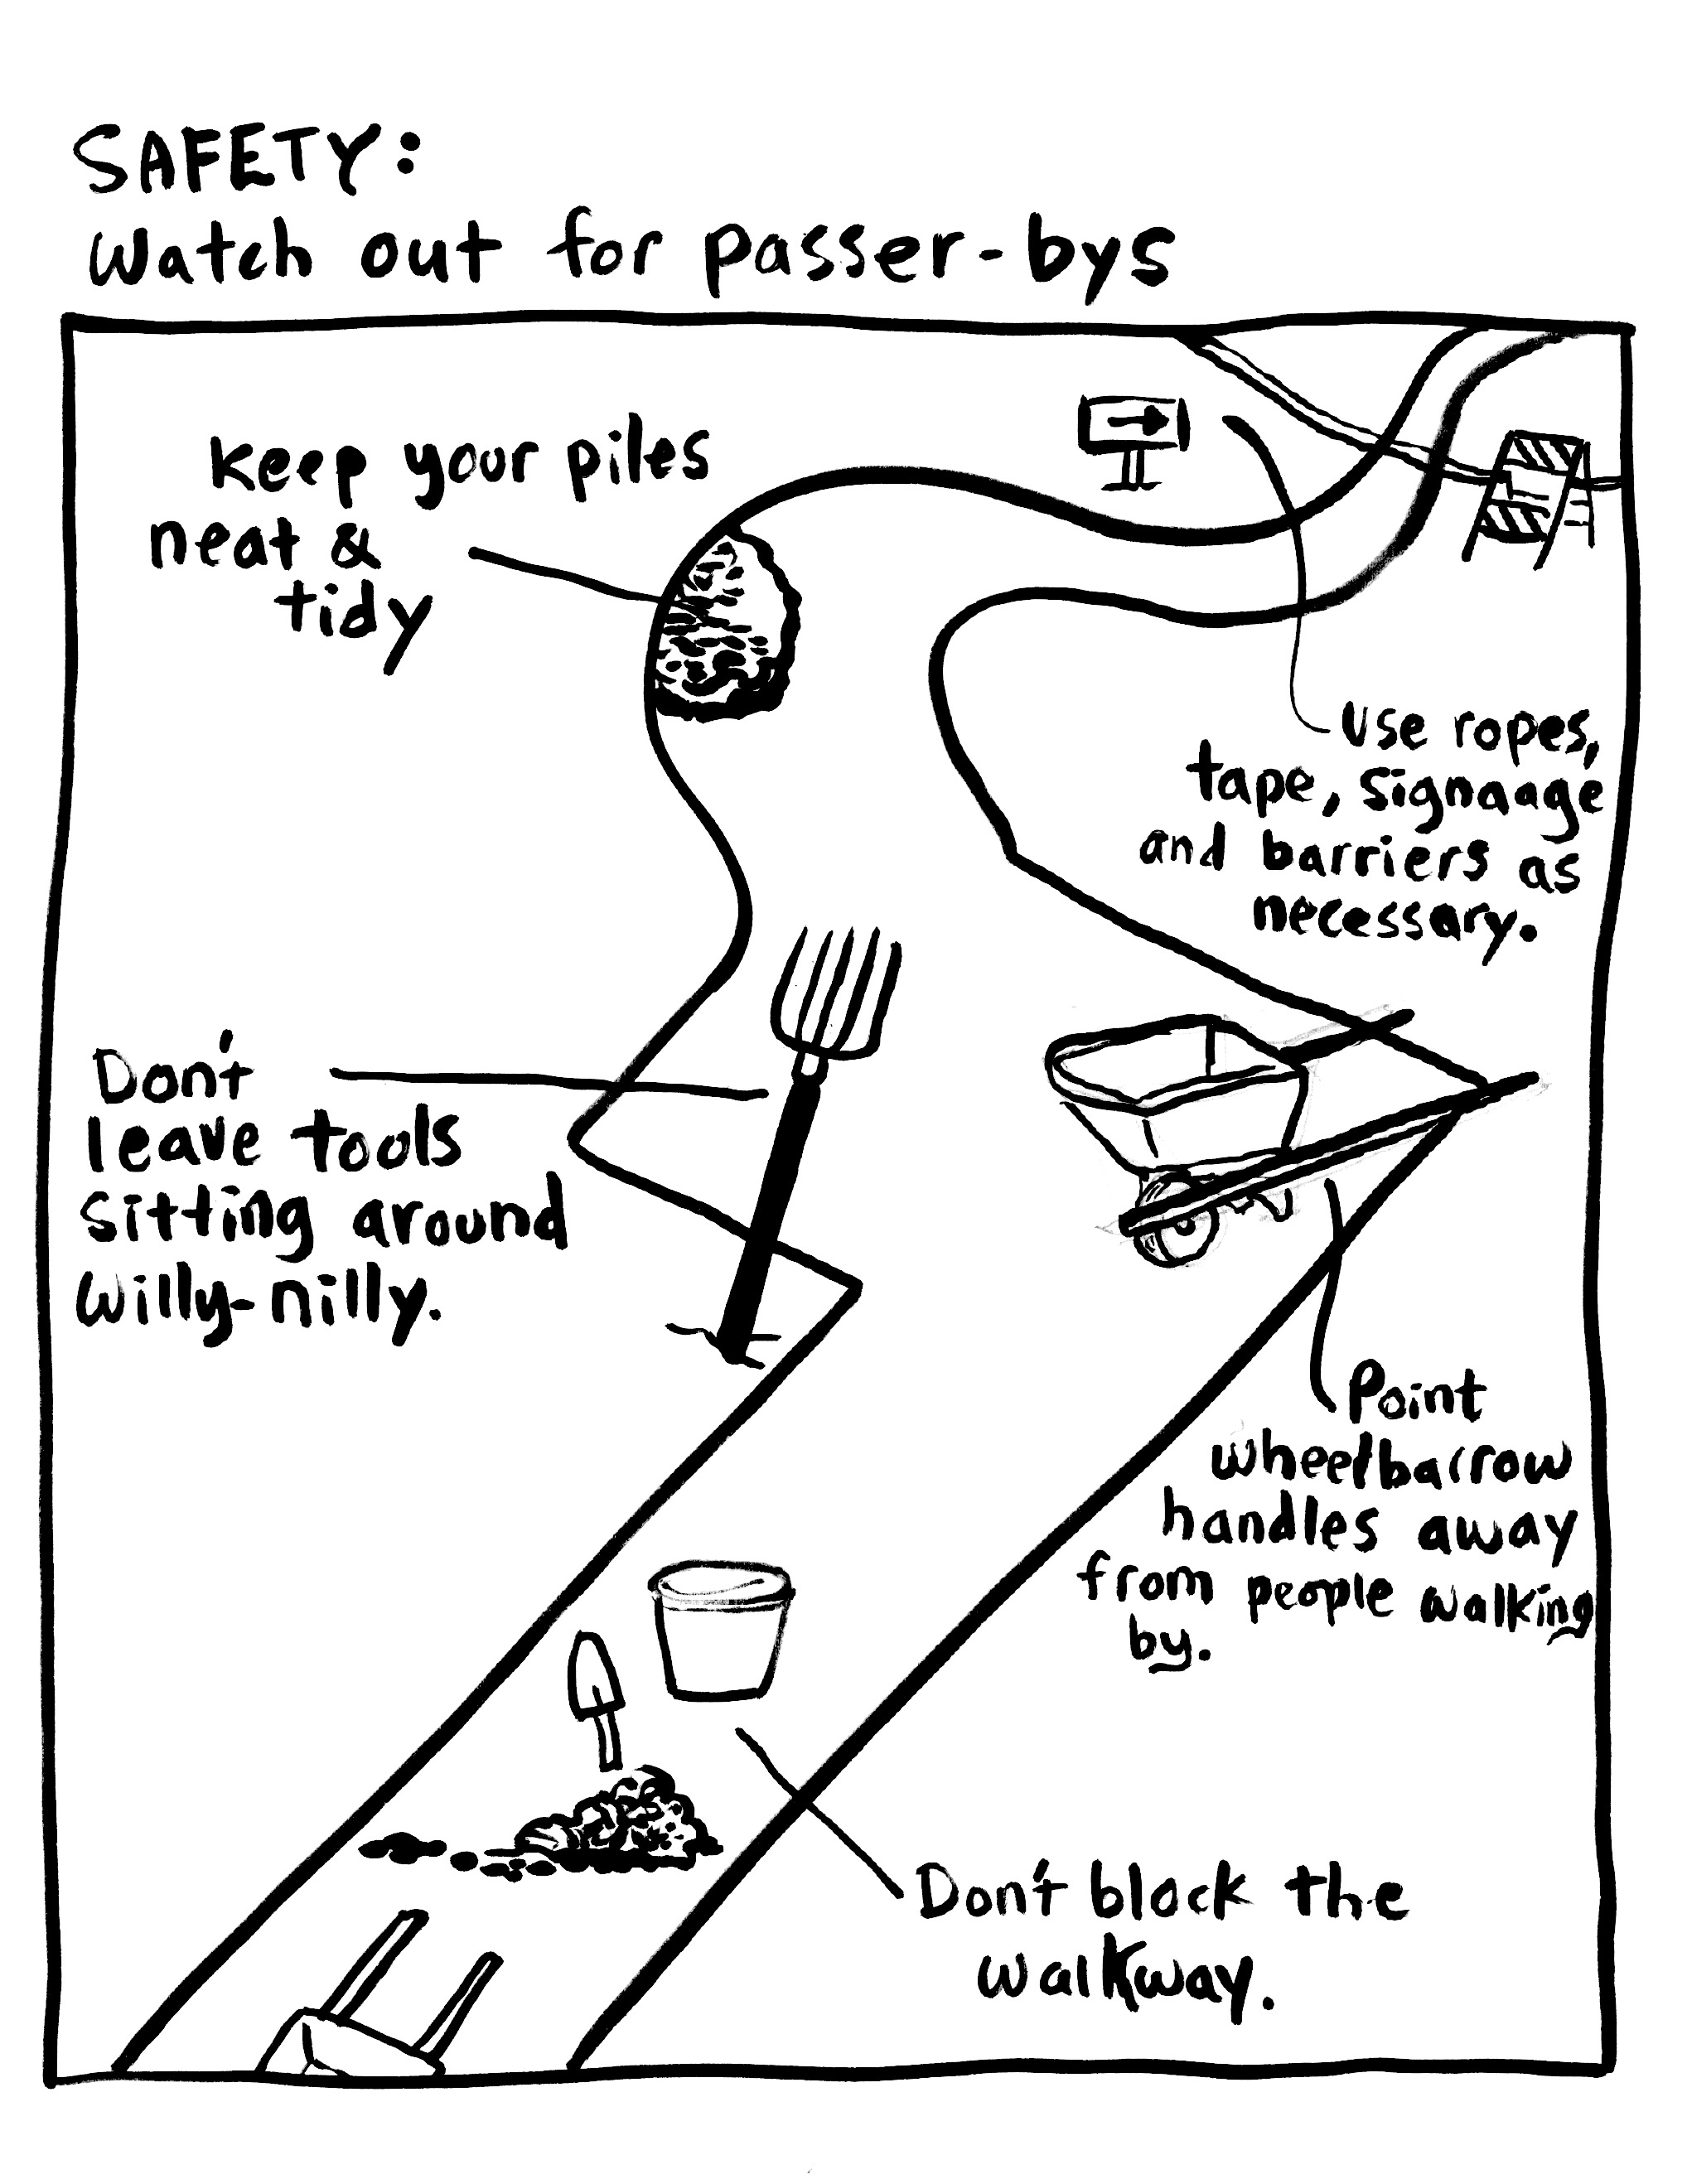 SAFETY:
Watch out for passer-bys
Keep your piles
neat &
tidy
Use ropes,
tape, signaage
and barriers as
necessary.
Don't
leave tools
sitting around
willy-nilly.
Point
wheelbarrow
handles away
from people walking
by.
Don't block the
walkway.